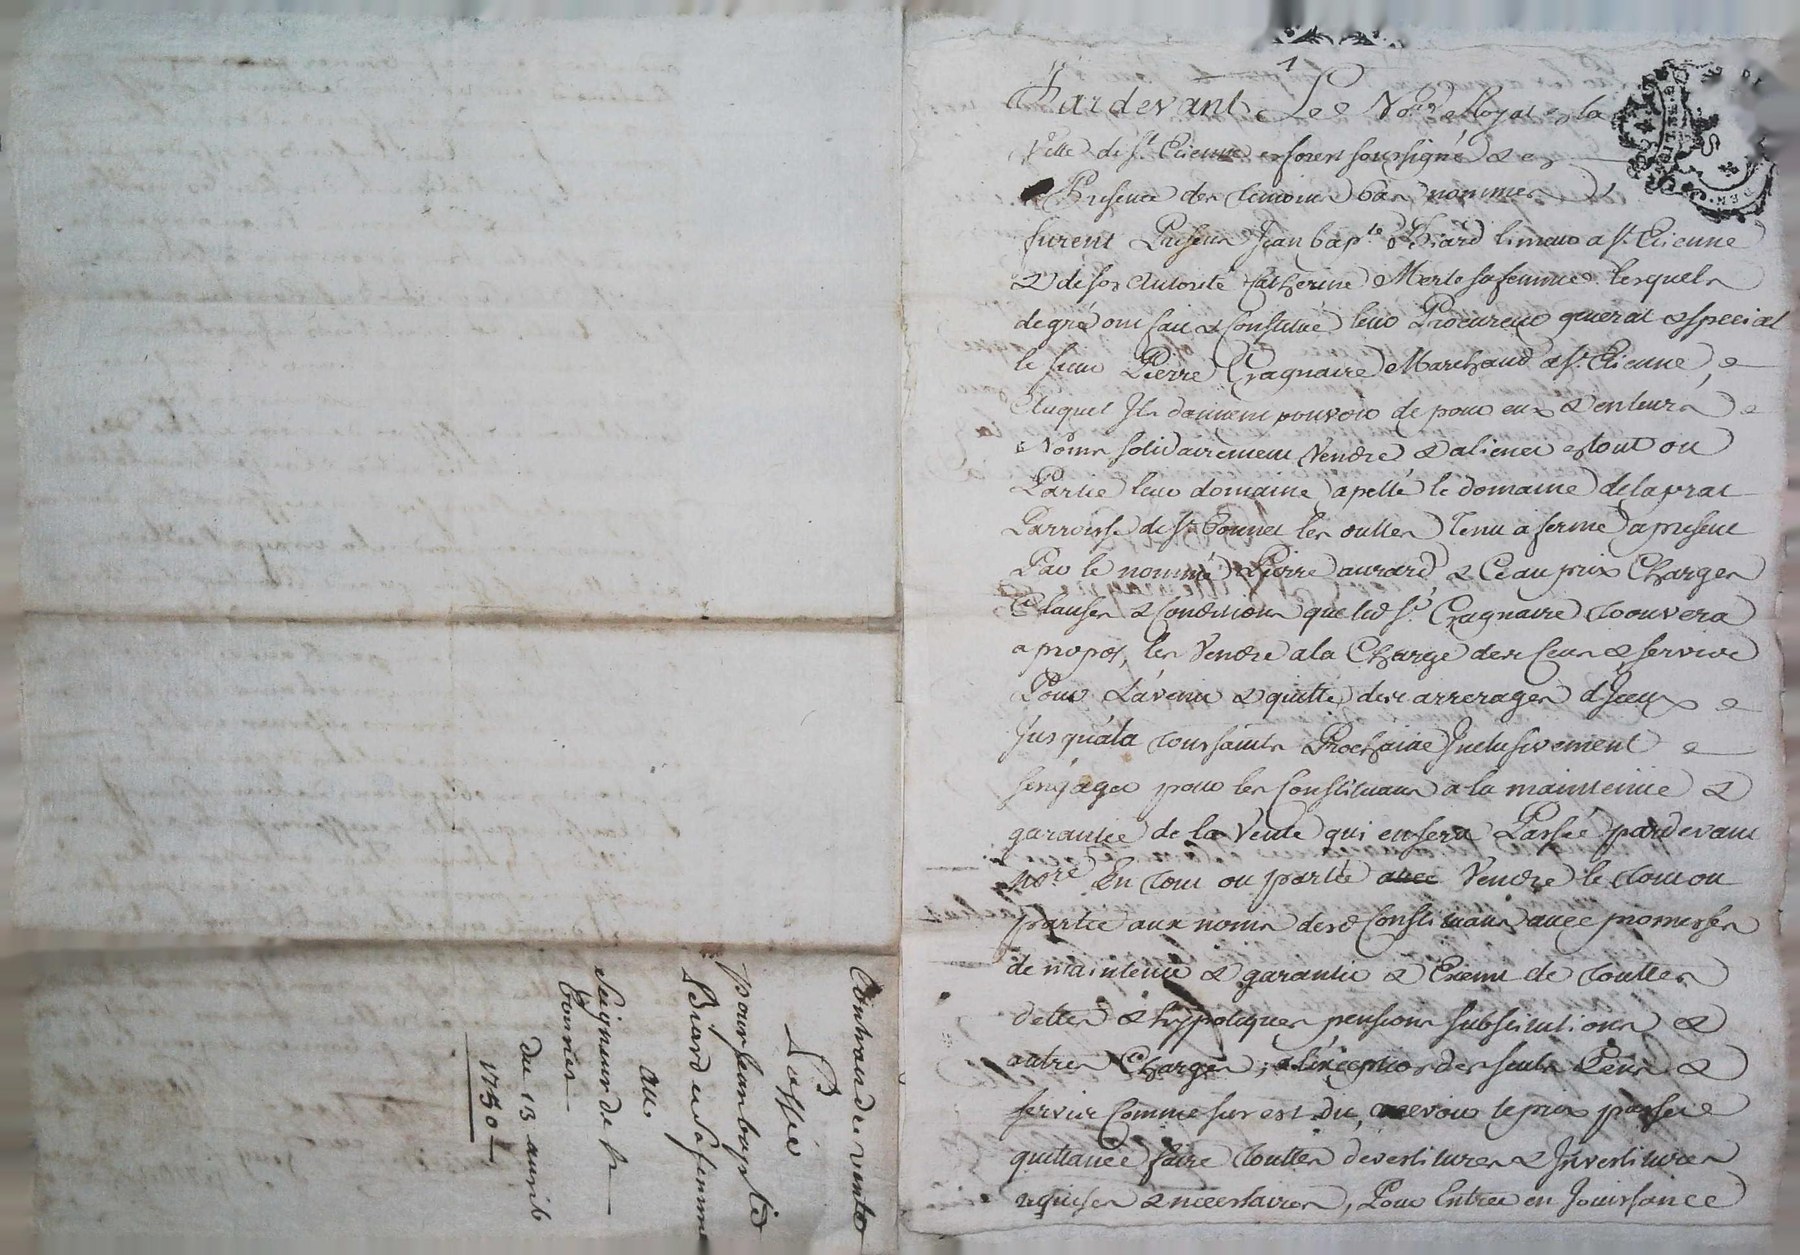 Pardevant Le Nore Royal en la
Ville de St. Etienne en forest soussigné & en
Presence des temoins bas nommes
furent Presens Jean bapte. Biard limeur a St. Etienne
& de son autorité Catherine Merle sa femme lesquels
de gré ont fait & Constitué leur Procureur general & special
le sieur Pierre Cragnaire Marchand a St. Etienne,
auquel Ils donnent pouvoir de pour eux & en leurs
Noms solidairement Vendre & aliener en tout ou
Partie leur domaine apellé le domaine de la prat
Parroisse de St. Bonnet les oulles tenu a ferme a present
Par le nommé Pierre aurard & Ce au prix Charges
Clauses & Conditions que led Sr. Cragnaire trouvera
a propos, les Vendre a la Charge des Cens & servive
Pour L'avenir & quitte des arrerages d'Iceux
Jusqu'a la toussaints Prochaine Inclusivement
sengager pour les Constituans a la maintenue &
garantie de la Vente qui en sera Passée pardevant
Nore En tout ou partie avec Vendre le tout ou
partie aux noms desd Constituans avec promesses
de maintenue & garantie & Exemt de touttes
dettes & hypotiques pensions substitutions &
autres Charges, a L'exception des seuls Cens &
servis Comme sus est Du, recevoir le prix passer
quittance faire touttes devestitures & Investitures
requises & necessaires, Pour Entrer en Jouissance
Contract de vente
Passée
pour Jean baptiste
Biard et sa femme
au
Seigneur de St
bonnet
Du 13 avril
1750